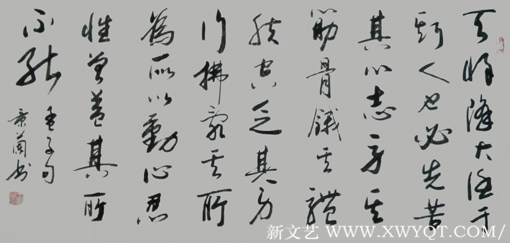 天将降大任于
斯人也必先苦
其心志劳其
筋骨餓其體
肤空乏其身
行拂亂其所
為所以動心忍
性曾益其所
不能
孟子句
景蘭书
新文艺 www.XWYQT.COM/